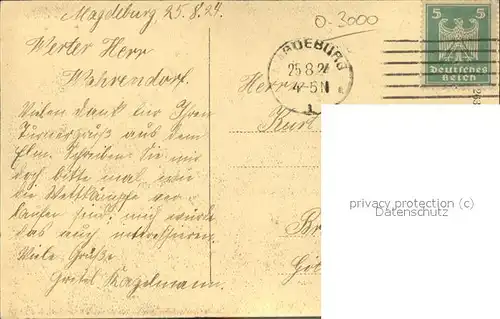 Magdeburg 25.8.24.
0-3000
Werter Herr
Wahrendorf.
Vielen Dank für Ihren
Turnergruß aus dem
Elm. Schreiben Sie mir
doch bitte mal, wie
die Wettkämpfe ver-
laufen sind, mich würde
das auch interessieren.
Viele Grüße
Gretel Kagelmann.
MAGDEBURG
25.8.24
4-5 N
1
5 5
Deutsches
Reich
Herrn
Kurt
Br
privacy protection (c)
Datenschutz